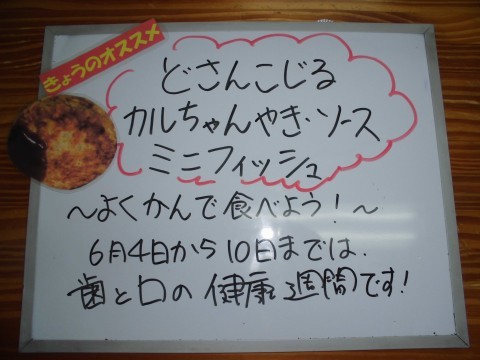 きょうのオススメ
どさんこじる
カルちゃんやき・ソース
ミニフィッシュ
～よくかんで食べよう！～
6月4日から10日までは、
歯と口の健康週間です！